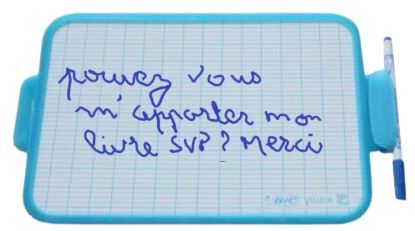 pouvez vous
m'apporter mon
livre SVP ? Merci
BIC VELLEDA